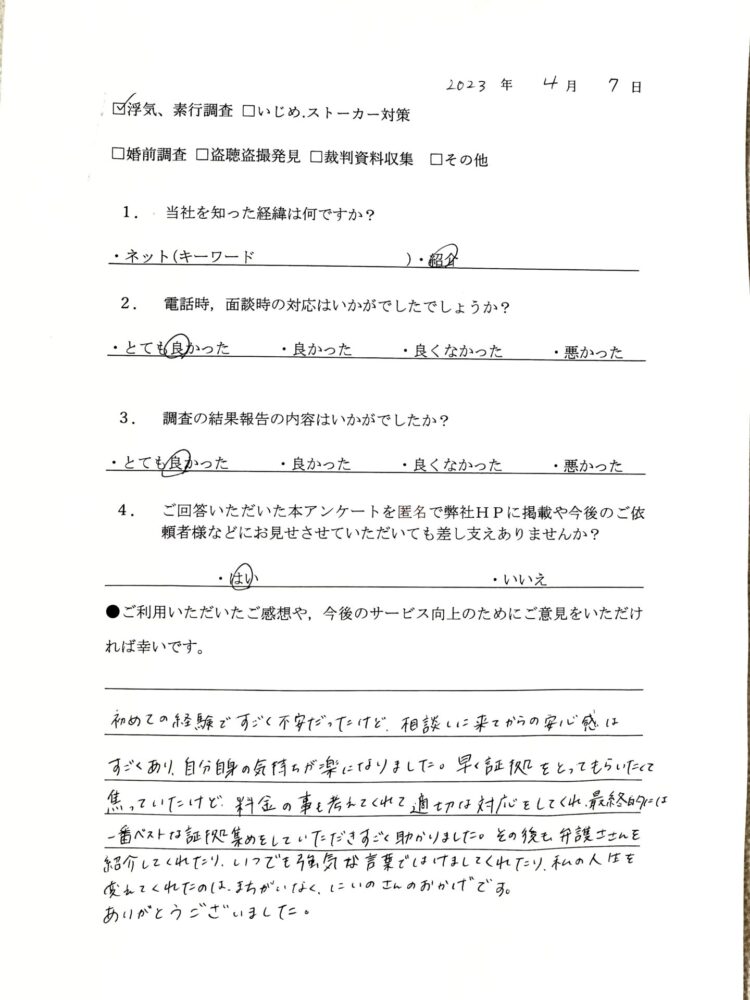 2023 年 4 月 7 日
☑浮気、素行調査 □いじめ.ストーカー対策
□婚前調査 □盗聴盗撮発見 □裁判資料収集 □その他
１． 当社を知った経緯は何ですか？
・ネット(キーワード )・紹介
２． 電話時，面談時の対応はいかがでしたでしょうか？
・とても良かった ・良かった ・良くなかった ・悪かった
３． 調査の結果報告の内容はいかがでしたか？
・とても良かった ・良かった ・良くなかった ・悪かった
４． ご回答いただいた本アンケートを匿名で弊社ＨＰに掲載や今後のご依
頼者様などにお見せさせていただいても差し支えありませんか？
・はい ・いいえ
●ご利用いただいたご感想や，今後のサービス向上のためにご意見をいただけ
れば幸いです。
初めての経験ですごく不安だったけど、相談しに来てからの安心感は
すごくあり、自分自身の気持ちが楽になりました。早く証拠をとってもらいたくて
焦っていたけど、料金の事も考えてくれて適切な対応をしてくれ、最終的には
一番ベストな証拠集めをしていただきすごく助かりました。その後も弁護士さんを
紹介してくれたり、いつでも強気な言葉ではげましてくれたり、私の人生を
変えてくれたのは、まちがいなく、にいのさんのおかげです。
ありがとうございました。